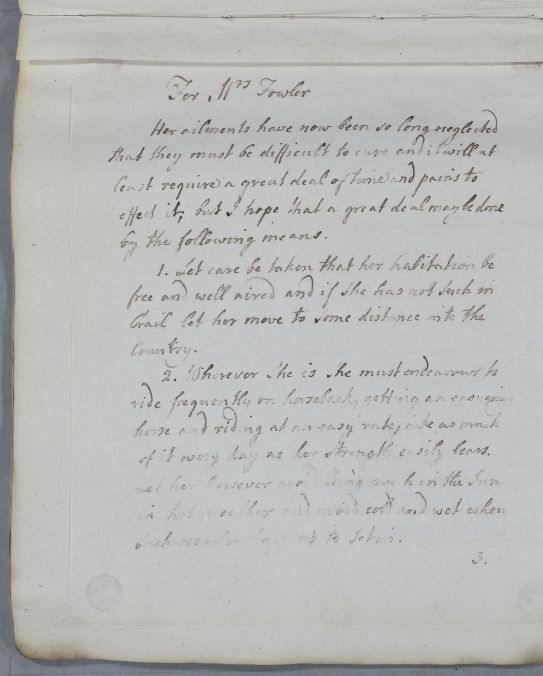 For Mrs Fowler
Her ailments have now been so long neglected
that they must be difficult to cure and it will at
least require a great deal of time and pains to
effect it; but I hope that a great deal may be done
by the following means.
1. Let care be taken that her habitation be
free and well aired and if she has not such in
Crail let her move to some distance into the
Country.
2. Wherever she is she must endeavour to
ride frequently on horseback, getting an easygoing
horse and riding at an easy rate, take as much
of it every day as her strength easily bears.
Let her however avoid being much in the Sun
in hot weather and avoid cold and wet when
such weather happens to set in.
3.